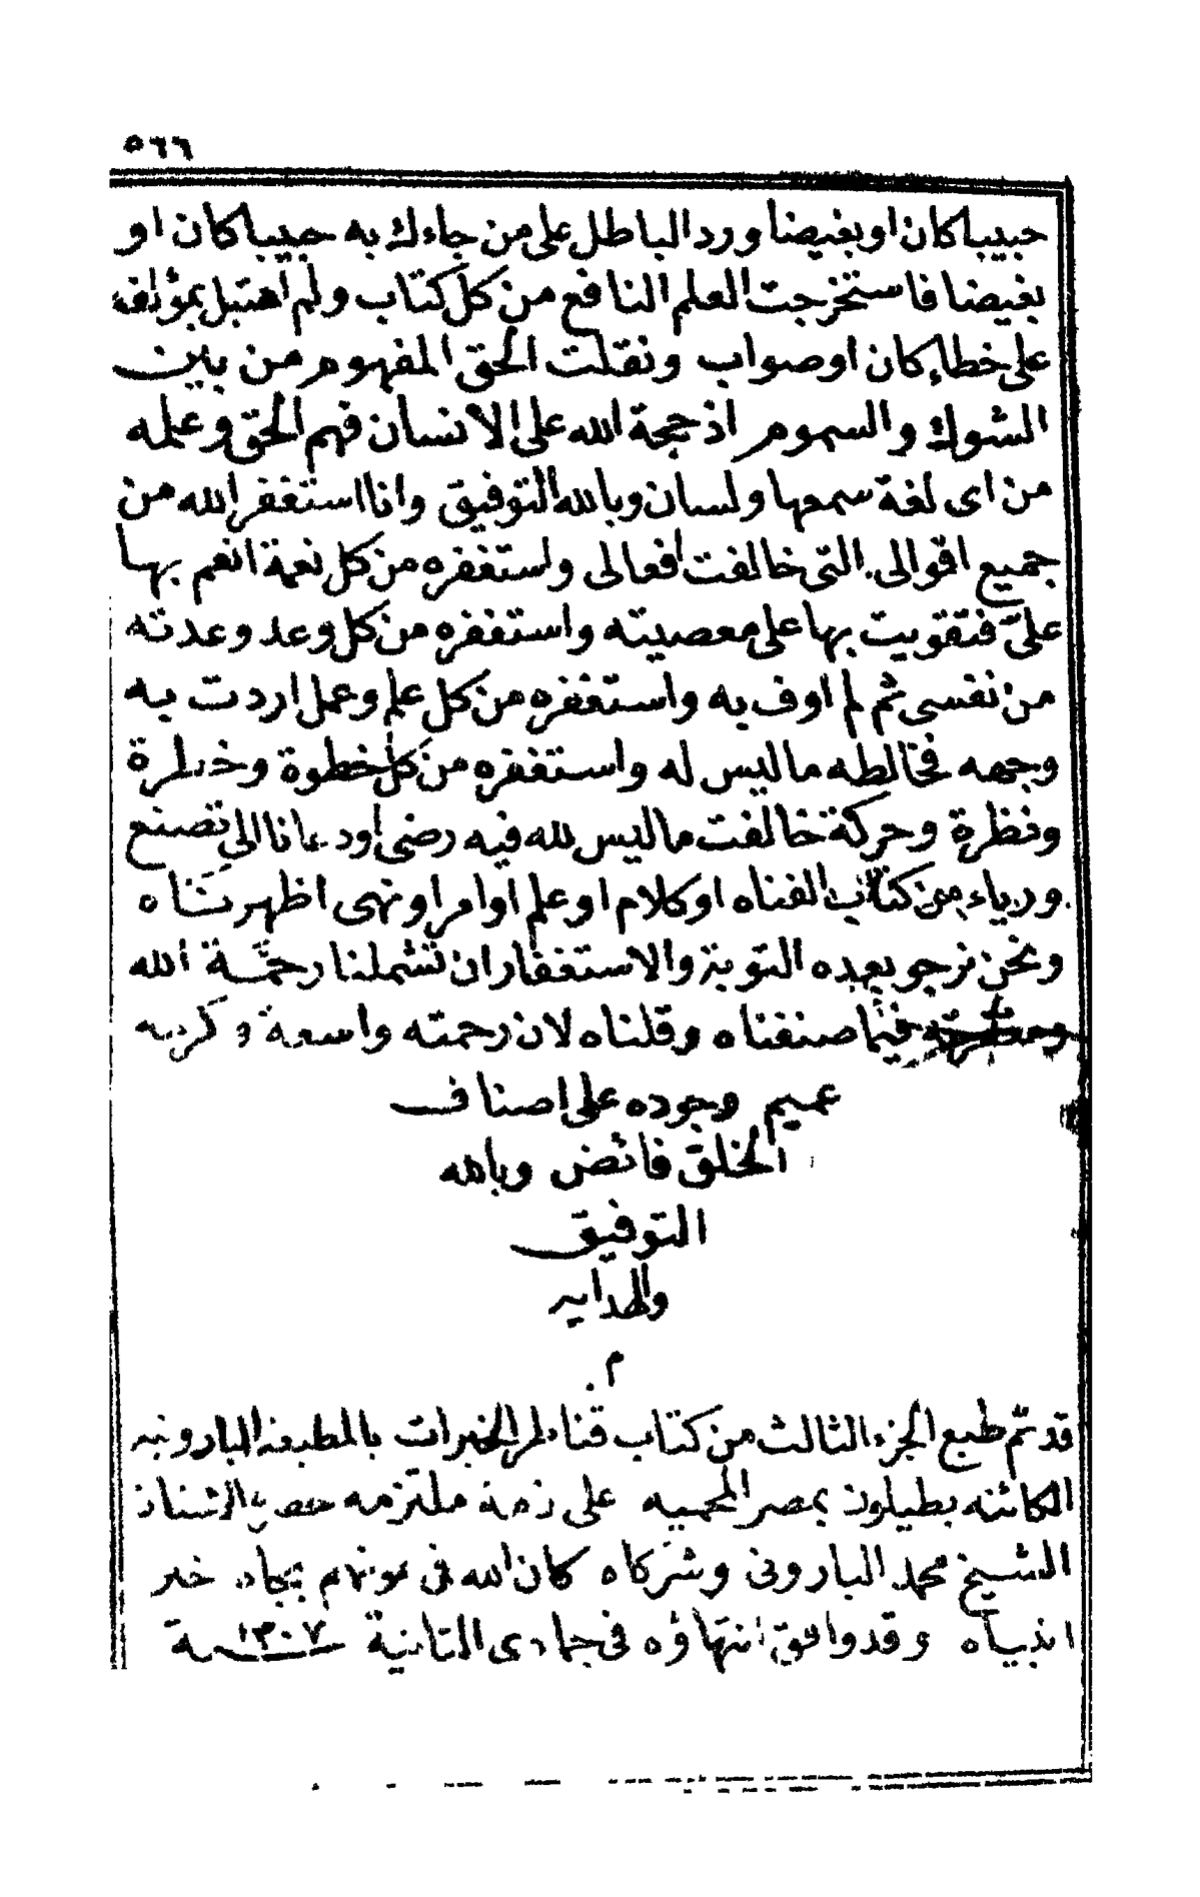 ٥٦٦
حبيبا كان او بغيضا ورد الباطل على من جاءك به حبيبا كان او
بغيضا فاستخرجت العلم النافع من كل كتاب ولم اهتبل بمؤلفه
على خطاء كان او صواب ونقلت الحق المفهوم من بين
الشوك والسموم اذ حجة الله على الانسان فهم الحق وعلمه
من اى لغة سمعها ولسان وبالله التوفيق وانا استغفر الله من
جميع اقوالى التى خالفت افعالى واستغفره من كل نعمة انعم بها
علىّ فتقويت بها على معصيته واستغفره من كل وعد وعدته
من نفسى ثم لم اوف به واستغفره من كل علم وعمل اردت به
وجهه فخالطه ما ليس له واستغفره من كل خطوة وخطرة
ونظرة وحركة خالفت ما ليس لله فيه رضى اودعانا الى تصنع
ورياء من كتاب الفناه او كلام او علم او امر او نهى اظهرناه
ونحن نرجو بعده التوبة والاستغفار ان تشملنا رحمة الله
فيما صنفناه وقلناه لان رحمته واسعة وكرمه
عميم وجوده على اصناف
الخلق فائض وبالله
التوفيق
والهدايه
م
قد تم طبع الجزء الثالث من كتاب قناطر الخيرات بالمطبعه البارونيه
الكائنه بطيلون بمصر المحميه على ذمة ملتزمه
الشيخ محمد البارونى وشركاه كان الله فى عونهم بجاه خير
انبياه وقد وافق انتهاؤه فى جمادى الثانية ١٣٠٧ سنة